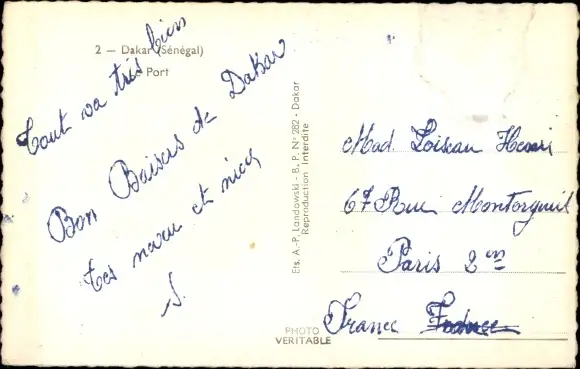 2 — Dakar (Sénégal)
Port
Tout va très bien
Bon Baisers de Dakar
tes neveu et niece
J.
Ets. A.-P. Landowski - B. P. N° 282 - Dakar
Reproduction Interdite
Mad. Loiseau Henri
67 Rue Montorgueil
Paris 2em
France
PHOTO
VERITABLE